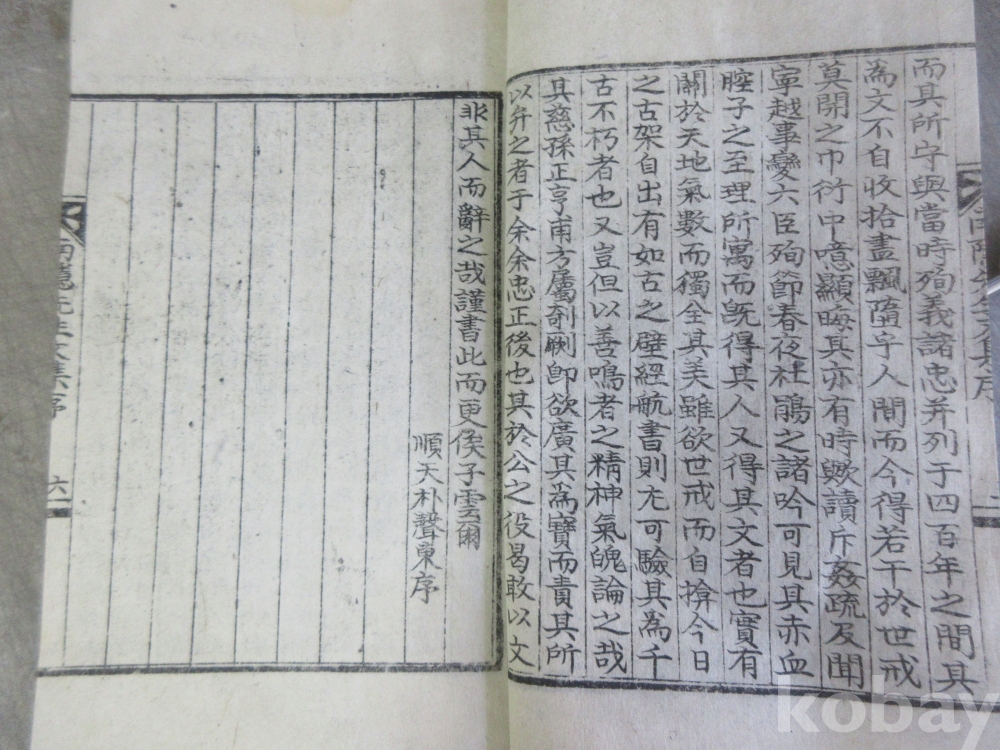 而其所守與當時殉義諸忠并列于四百年之間其
為文不自收拾盡飄隨宇人間而今得若干於世戒
莫開之巾衍中噫顯晦其亦有時歟讀斥姦疏及聞
寧越事變六臣殉節春夜杜鵑之諸吟可見其赤血
腔子之至理所寓而旣得其人又得其文者也實有
關於天地氣數而獨全其美雖欲世戒而自揜今日
之古架自出有如古之壁經航書則尤可驗其為千
古不朽者也又豈但以善鳴者之精神氣魄論之哉
其慈孫正亨甫方屬剞劂卽欲廣其為寶而責其所
以弁之者于余余忠正後也其於公之役曷敢以文
非其人而辭之哉謹書此而更俟子雲爾
順天朴聲東序
先生文集序
六
kobay